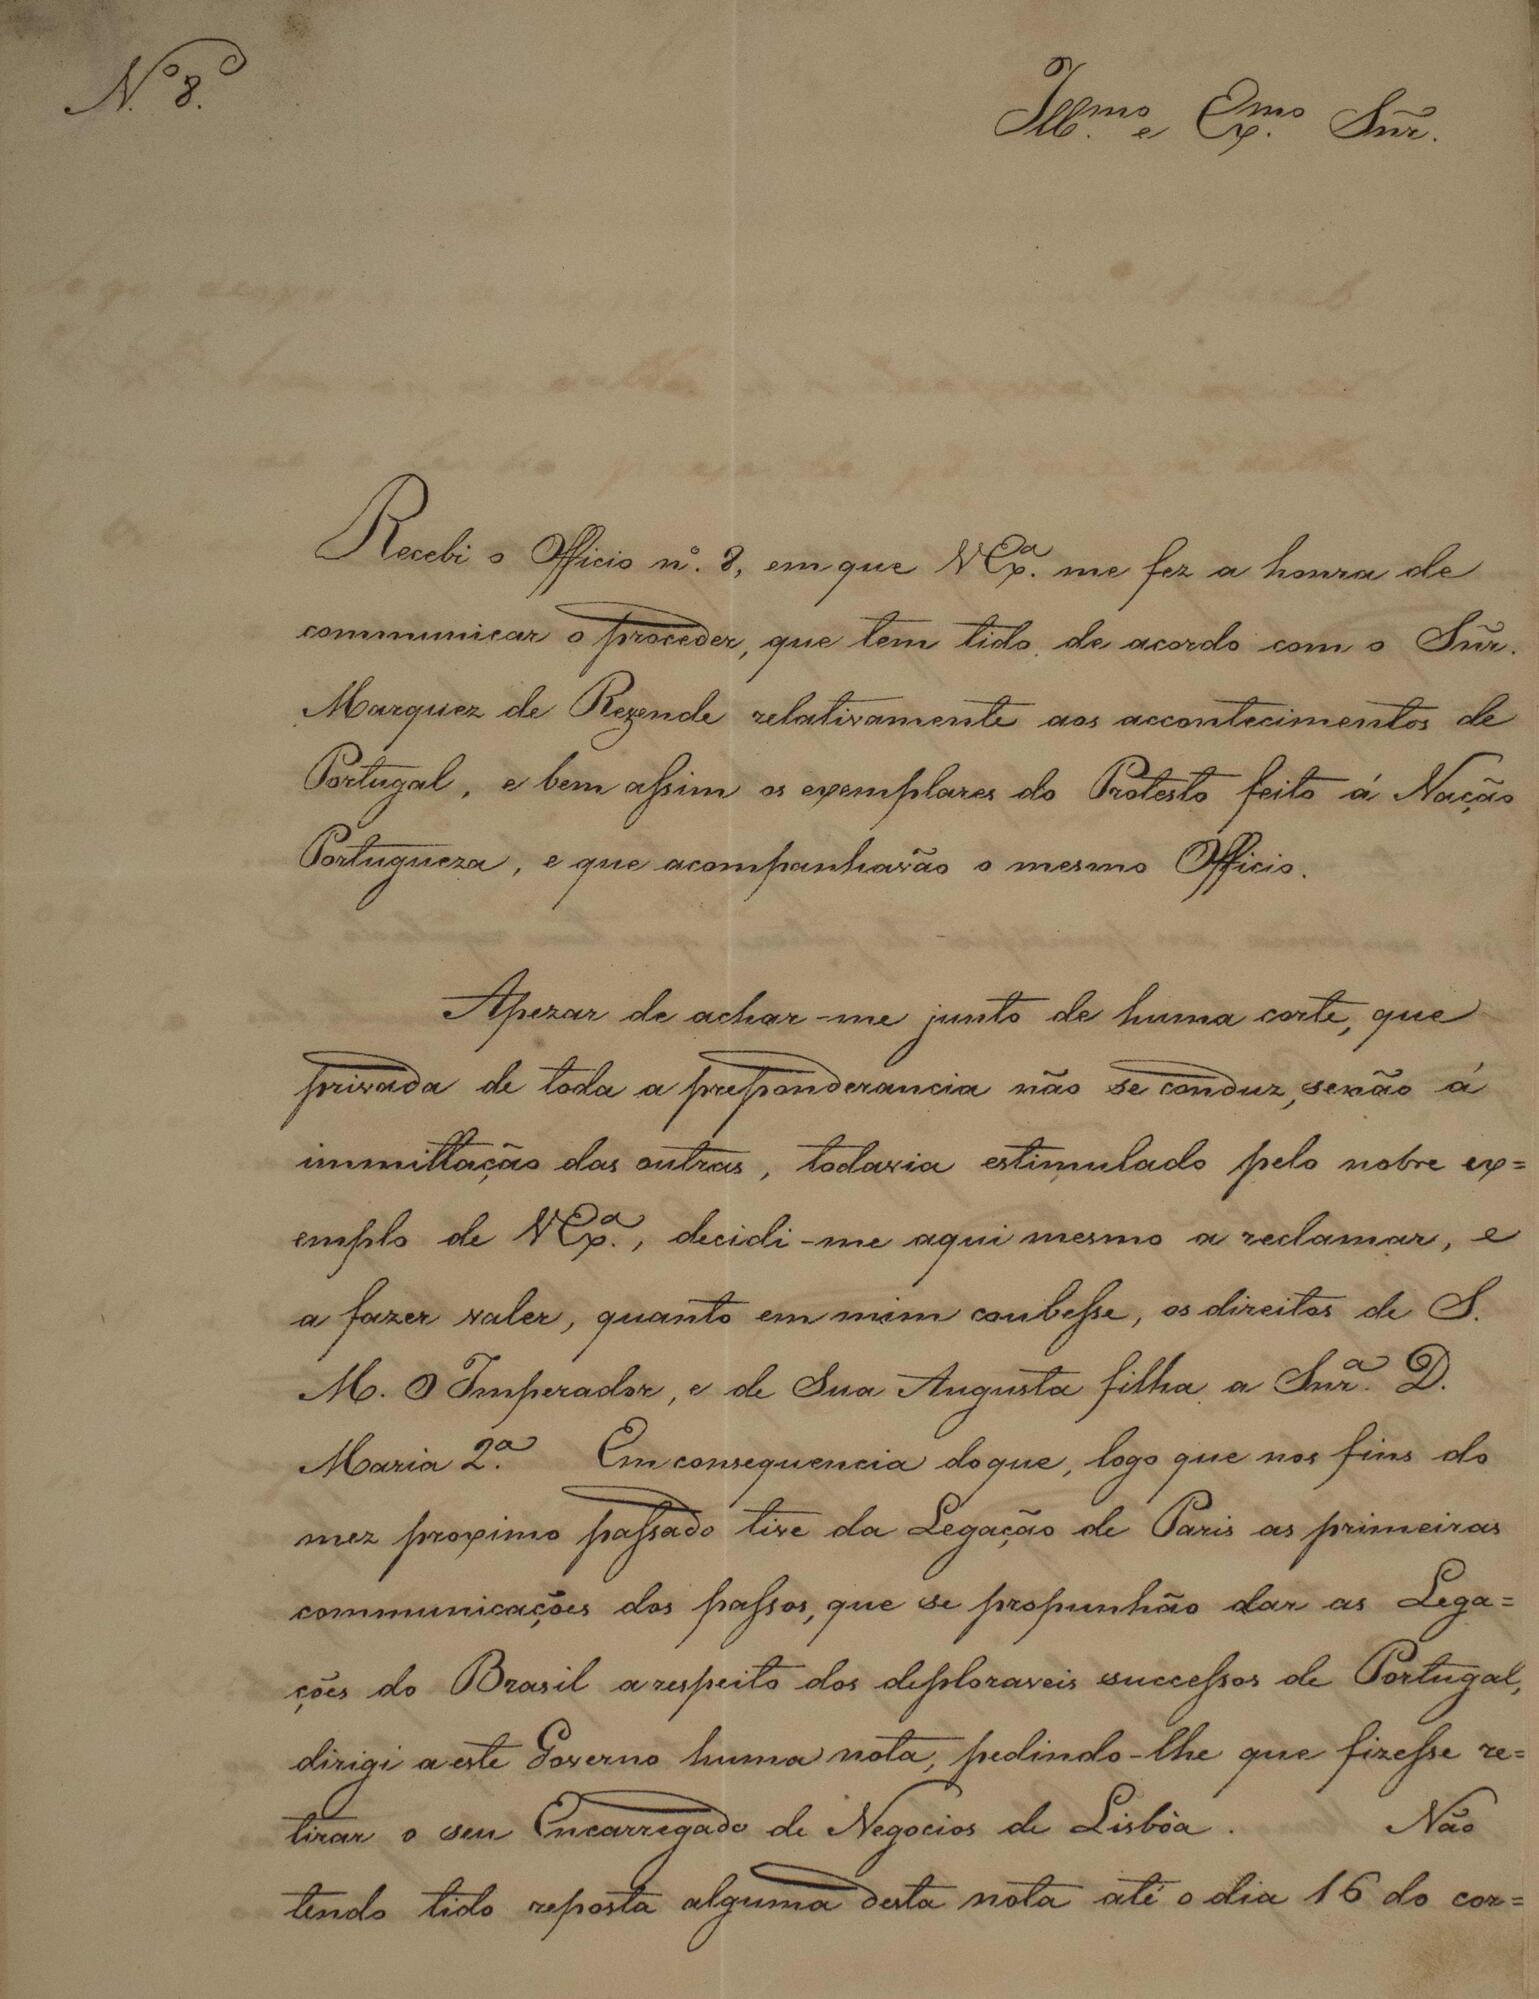 N.º 8.
Ill.mo e Ex.mo Snr̃.
Recebi o Officio nº. 8, em que V Ex.ª me fez a honra de
communicar o proceder, que tem tido de acordo com o Snr̃.
Marquez de Rezende relativamente aos accontecimentos de
Portugal, e bem assim os exemplares do Protesto feito á Nação
Portugueza, e que acompanharão o mesmo Officio.
Apezar de achar-me junto de huma corte, que
privada de toda a preponderancia não se conduz, senão á
immittação das outras, todavia estimulado pelo nobre ex=
emplo de V Ex.ª, decidi-me aqui mesmo a reclamar, e
a fazer valer, quanto em mim coubesse, os direitos de S.
M. O Imperador, e de Sua Augusta filha a Snr.ª D.
Maria 2.ª Em consequencia do que, logo que nos fins do
mez proximo passado tive da Legação de Paris as primeiras
communicações dos passos, que se propunhão dar as Lega=
ções do Brasil a respeito dos deploraveis successos de Portugal,
dirigi a este Governo huma nota, pedindo-lhe que fizesse re=
tirar o seu Encarregado de Negocios de Lisbôa. Não
tendo tido reposta alguma desta nota até o dia 16 do cor=